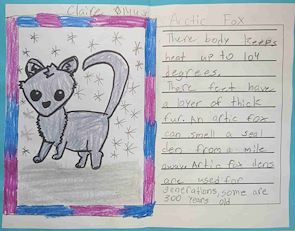 Claire
Arctic Fox
There body keeps
heat up to 104
degrees.
There feet have
a layer of thick
fur. An artic fox
can smell a seal
den from a mile
away. Artic fox dens
are used for
generations, some are
300 years old